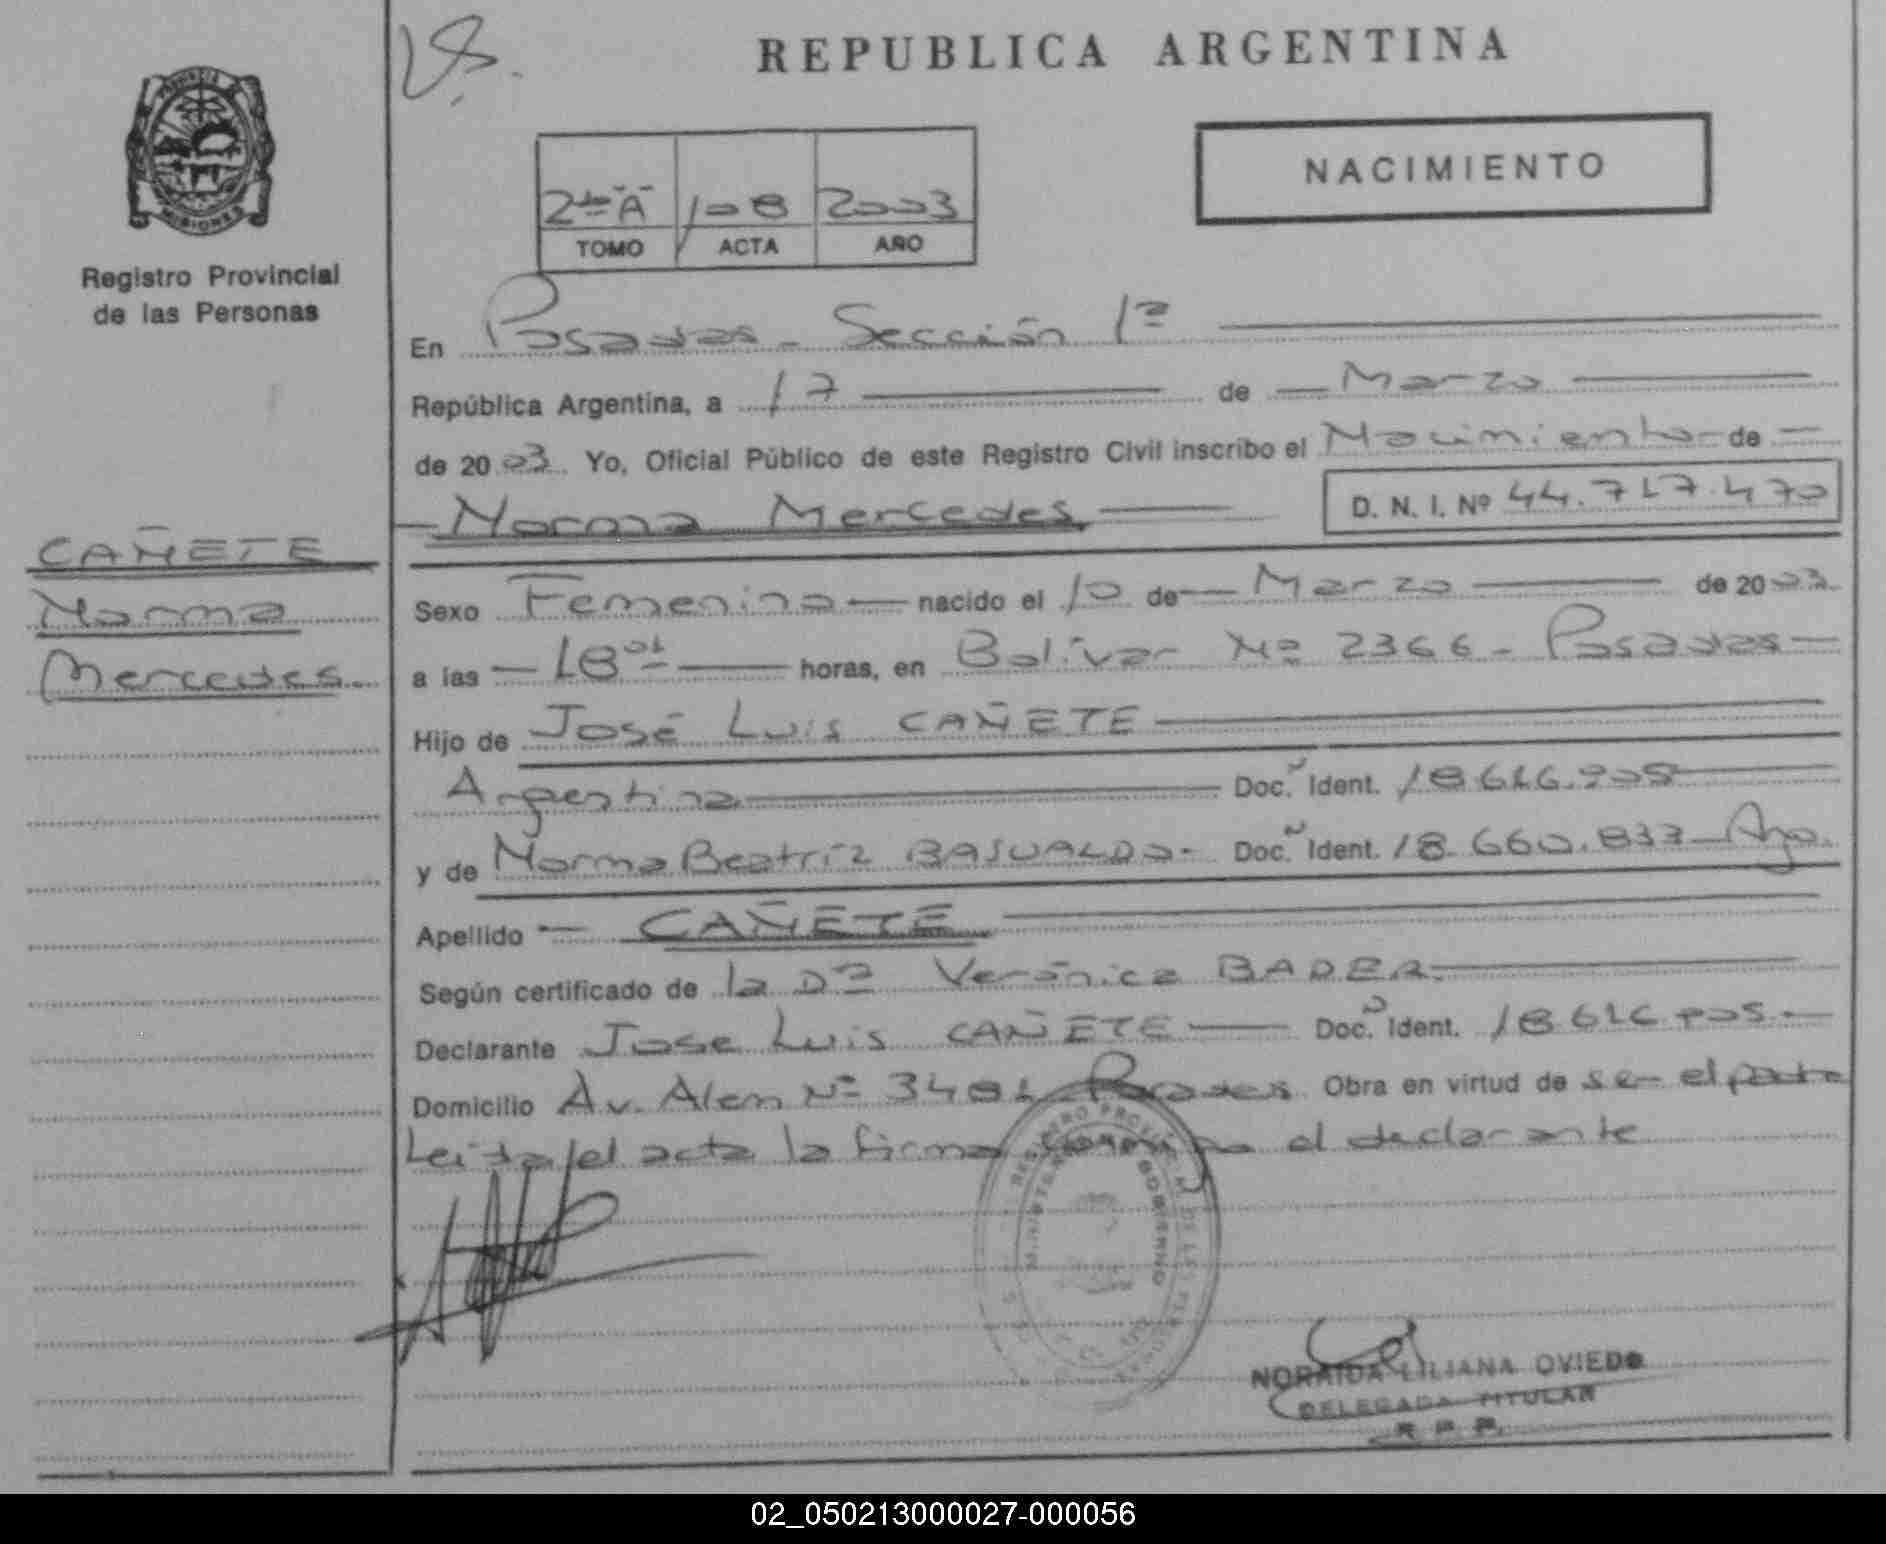 REPUBLICA ARGENTINA
PROVINCIA
MISIONES
Registro Provincial
de las Personas
NACIMIENTO
2to "A" 108 2003
TOMO ACTA AÑO
En Posadas - Sección 1ª
República Argentina, a 17 de Marzo
de 2003 Yo, Oficial Público de este Registro Civil inscribo el Nacimiento de
Norma Mercedes D. N. I. Nº 44.717.470
CAÑETE
Norma
Mercedes
Sexo Femenino nacido el 10 de Marzo de 2003
a las 18 horas, en Bolívar Nº 2366 - Posadas
Hijo de José Luis CAÑETE
Argentina Doc. Ident. 18.616.905
y de Norma Beatriz BASUALDO - Doc. Ident. 18.660.833 - Arg.
Apellido CAÑETE
Según certificado de la Dra Verónica BADER
Declarante Jose Luis CAÑETE Doc. Ident. 18.616.905.-
Domicilio Av. Alem Nº 3401 Posadas Obra en virtud de ser el padre
Leida el acta la firma conmigo el declarante
REGISTRO PROVINCIAL DE LAS PERSONAS
MINISTERIO GOBIERNO
NORAIDA LILIANA OVIEDO
DELEGADA TITULAR
R. P. P.
02_050213000027-000056